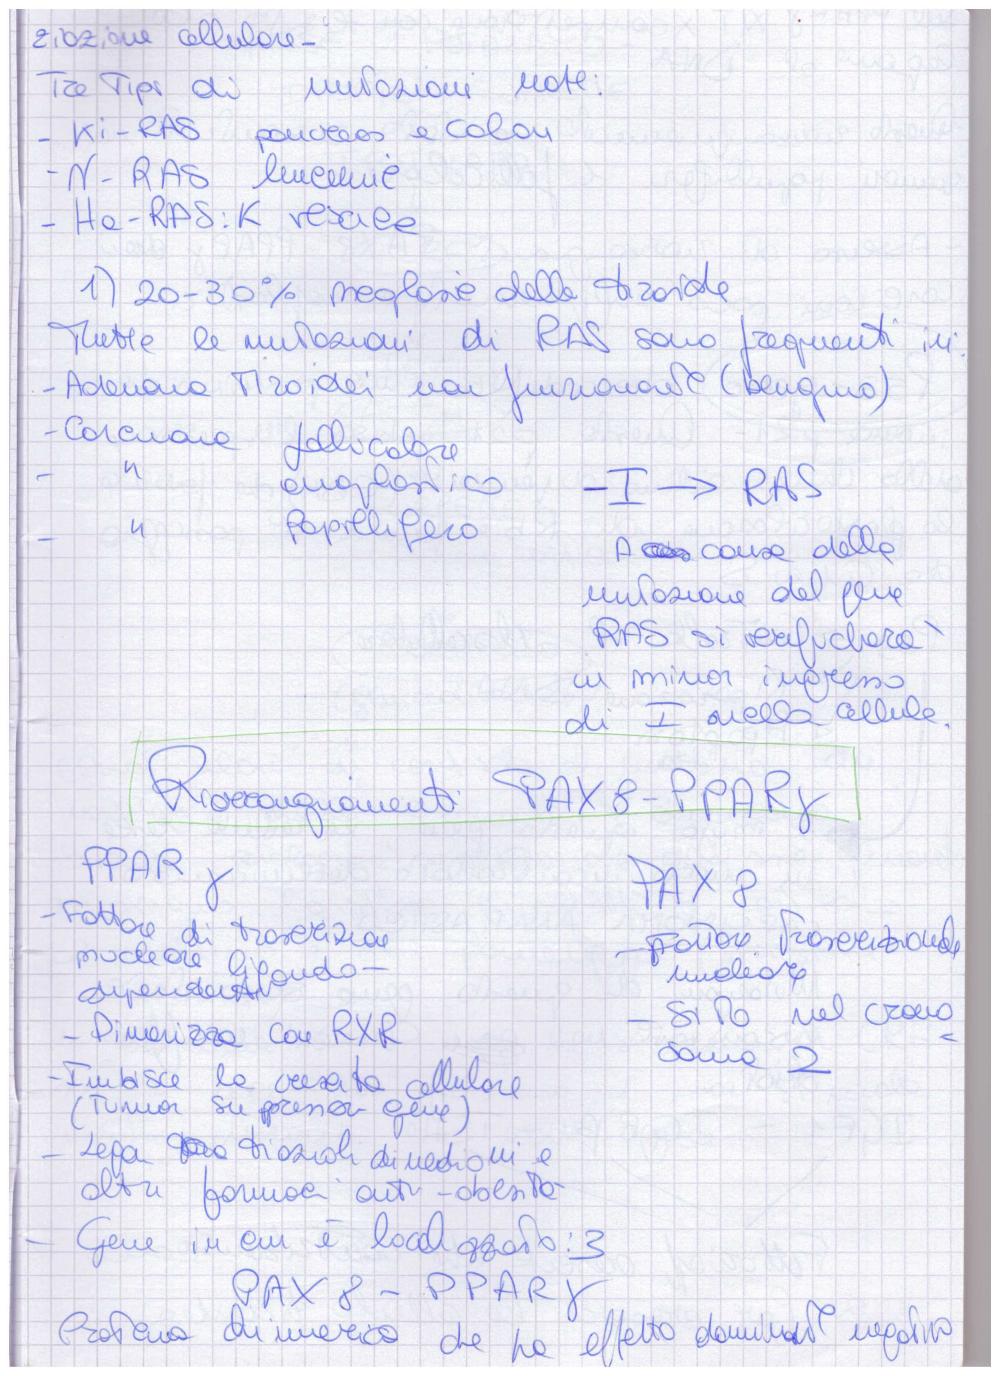 ziazione cellulare-
Tre Tipi di mutazioni note:
- Ki-RAS pancreas e colon
- N-RAS leucemie
- Ha-RAS: K vescica
1) 20-30% neoplasie della tiroide
Tutte le mutazioni di RAS sono frequenti in:
- Adenoma Tiroidei non funzionante (benigno)
- Carcinoma follicolare
- " anaplastico
- " papillifero
- I → RAS
A causa della
mutazione del gene
RAS si verificherà
un minor ingresso
di I nella cellula.
Riarrangiamenti PAX8-PPARγ
PPARγ
- Fattore di trascrizione
nucleare ligando-
dipendente
- Dimerizza con RXR
- Inibisce la crescita cellulare
(Tumor suppressor gene)
- Lega tiazolidinedioni e
altri farmaci anti-obesità
- Gene in cui è localizzato: 3
PAX 8
- Fattore Trascrizionale
nucleare
- Sito nel cromo
soma 2
PAX 8 - PPARγ
Proteina dimerica che ha effetto dominante negativo